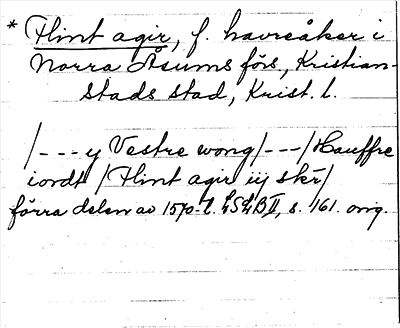 * Flint agir, f. havreåker i
Norra Åsums förs, Kristian-
stads stad, Krist. l.
/--- y Vestre wong/---/Hauffre
iordt/Flint agir iij skr/
förra delen av 1570-t. LSLB II, s. 161. orig.